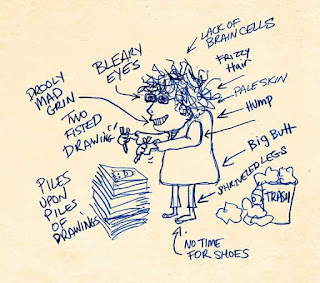 LACK OF
BRAIN CELLS
BLEARY
EYES
FRIZZY
HAIR
DROOLY
MAD
GRIN
PALE SKIN
HUMP
TWO
FISTED
DRAWING
Big Butt
SHRIVELED LEGS
PILES
UPON
PILES
OF
DRAWINGS
TRASH
NO TIME
FOR SHOES